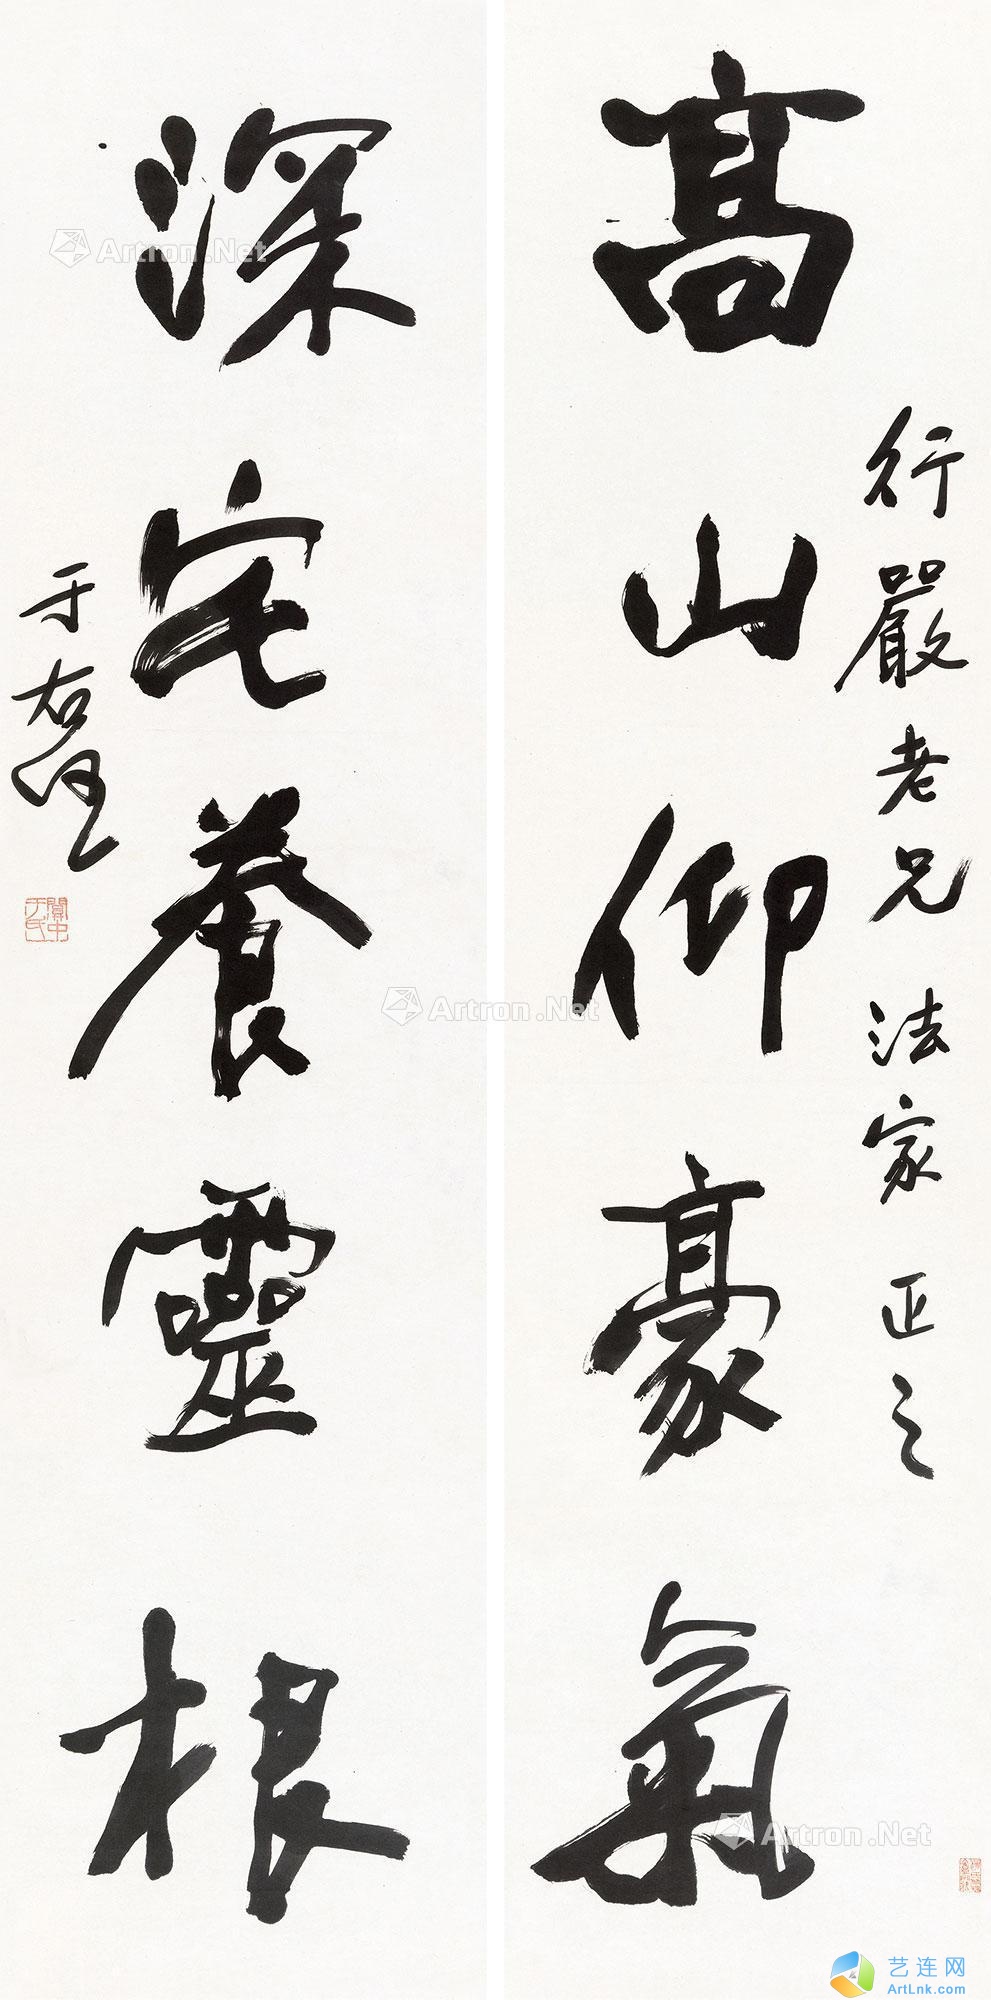 高山仰豪氣
行嚴老兄法家正之
深宅養靈根
于右任
關中于氏
Artron.Net
Artron.Net
Artron.Net
艺连网
ArtLnk.com